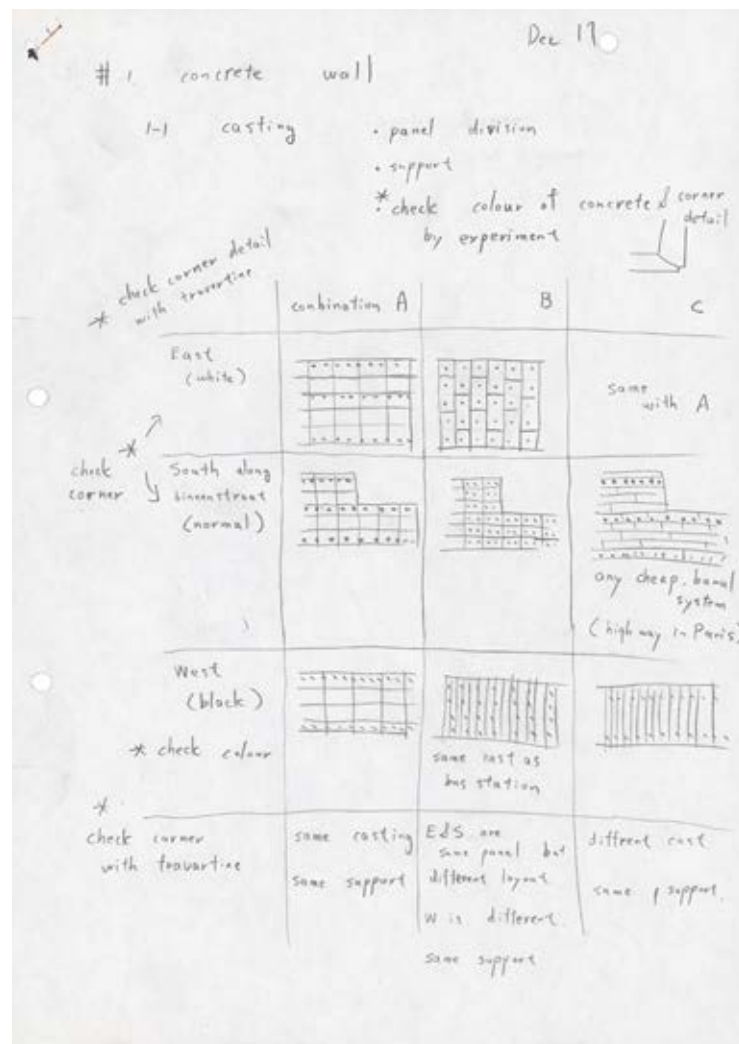 Dec 19
# 1 concrete wall
1-1 casting
• panel division
• support
* check colour of concrete & corner detail
by experiment
* check corner detail
with travertine
combination A
B
C
East
(white)
same
with A
* check
corner
South along
(normal)
any cheap, banal
system
(high way in Paris)
West
(black)
* check colour
same cast as
bus station
*
check corner
with travartine
same casting
same support
E&S are
same panel but
different layout
W is different.
same support
diffrent cast
same support.